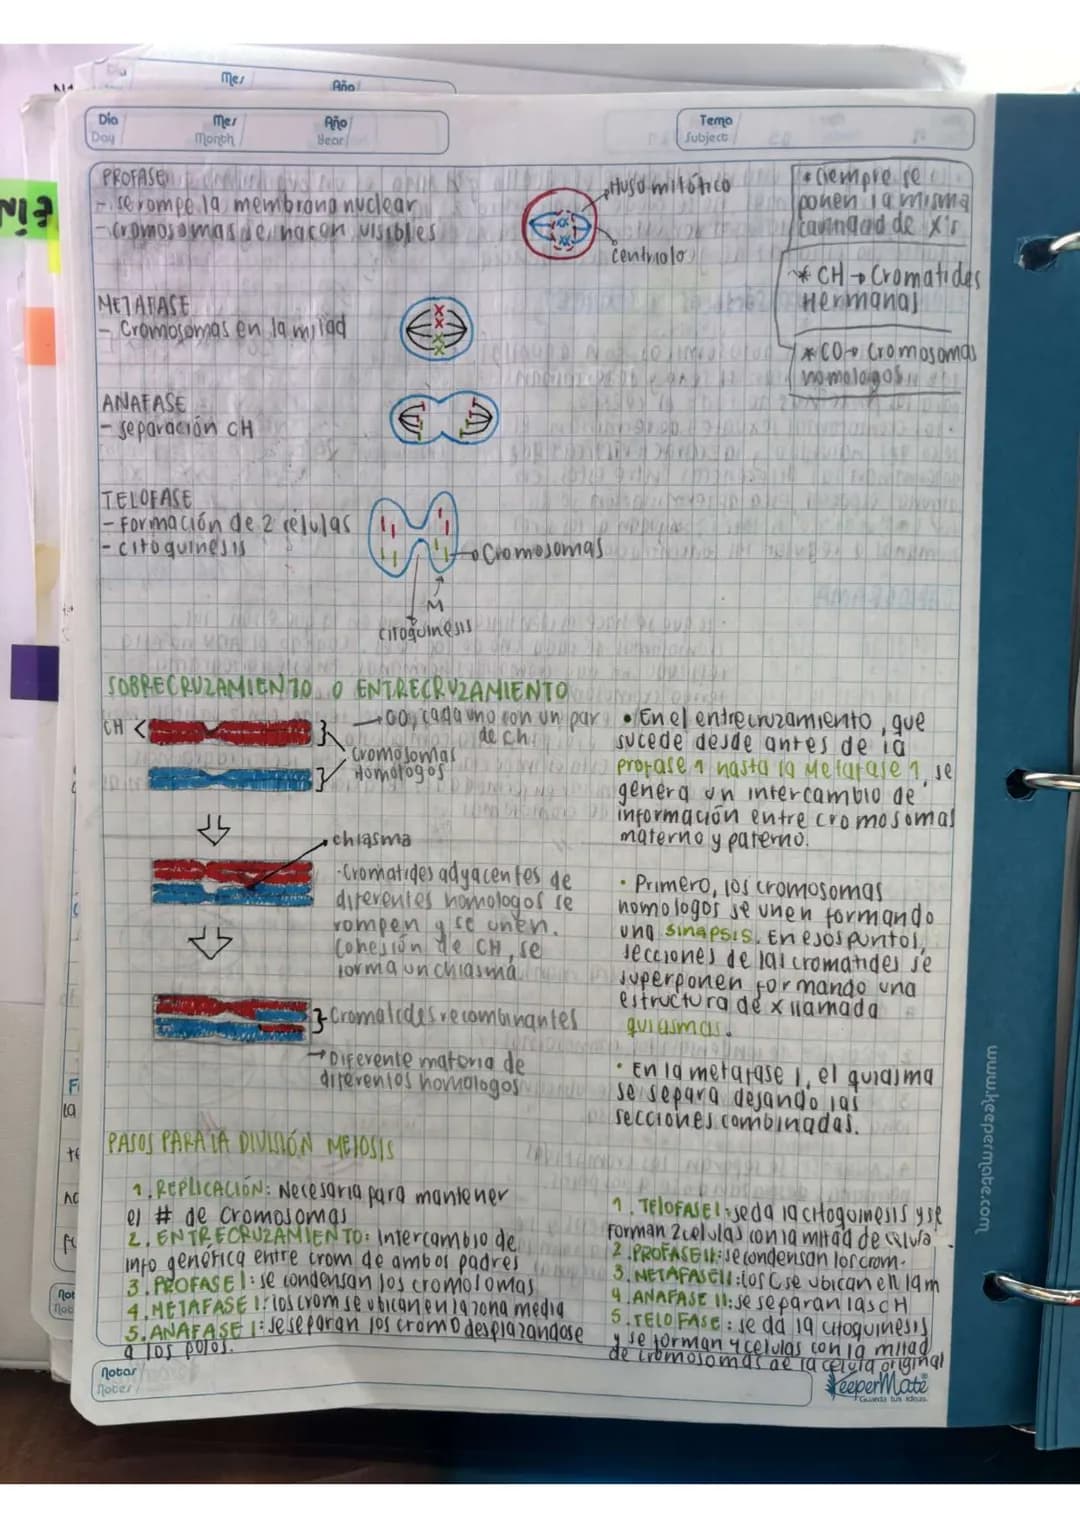 Mes
Año
Día
Day
Mes
Month
Año
Year
Tema
Subject
PROFASE
- se rompe la membrana nuclear
- cromosomas se hacen visibles
Huso mitótico
centriolo
* siempre se
ponen la misma
cantidad de x's
* CH → Cromatides
Hermanas
* CO → Cromosomas
homologos
METAFASE
- Cromosomas en la mitad
ANAFASE
- separación CH
TELOFASE
- Formación de 2 células
- citoquinesis
Cromosomas
M
citoquinesis
SOBRECRUZAMIENTO O ENTRECRUZAMIENTO
CH <
→ CO, cada uno con un par
de ch.
Cromosomas
Homologos
chiasma
- Cromatides adyacentes de
diferentes homologos se
rompen y se unen.
Cohesión de CH, se
forma un chiasma
Cromatides recombinantes
→ Diferente materia de
diferentes homologos
• En el entrecruzamiento, que
sucede desde antes de la
profase 1 hasta la Metafase 1, se
genera un intercambio de
información entre cromosomas
materno y paterno.
• Primero, los cromosomas
homologos se unen formando
una sinapsis. En esos puntos,
secciones de las cromatides se
superponen formando una
estructura de x llamada
quiasmas.
• En la metafase 1, el quiasma
se separa dejando las
secciones combinadas.
PASOS PARA LA DIVISIÓN MEIOSIS
1. REPLICACIÓN: Necesaria para mantener
el # de Cromosomas
2. ENTRECRUZAMIENTO: Intercambio de
info genética entre crom de ambos padres
3. PROFASE I: se condensan los cromosomas
4. METAFASE I: los crom se ubican en la zona media
5. ANAFASE I: se separan los cromo desplazandose
a los polos.
1. TELOFASE I: se da la citoquinesis y se
forman 2 celulas con la mitad de celula.
2. PROFASE II: se condensan los crom.
3. METAFASE II: los C se ubican en la m
4. ANAFASE II: se separan las CH
5. TELO FASE: se da la citoquinesis
y se forman 4 celulas con la mitad
de cromosomas de la celula original
Notas
Notes
KeeperMate
Guarda tus ideas.
www.keepermate.com